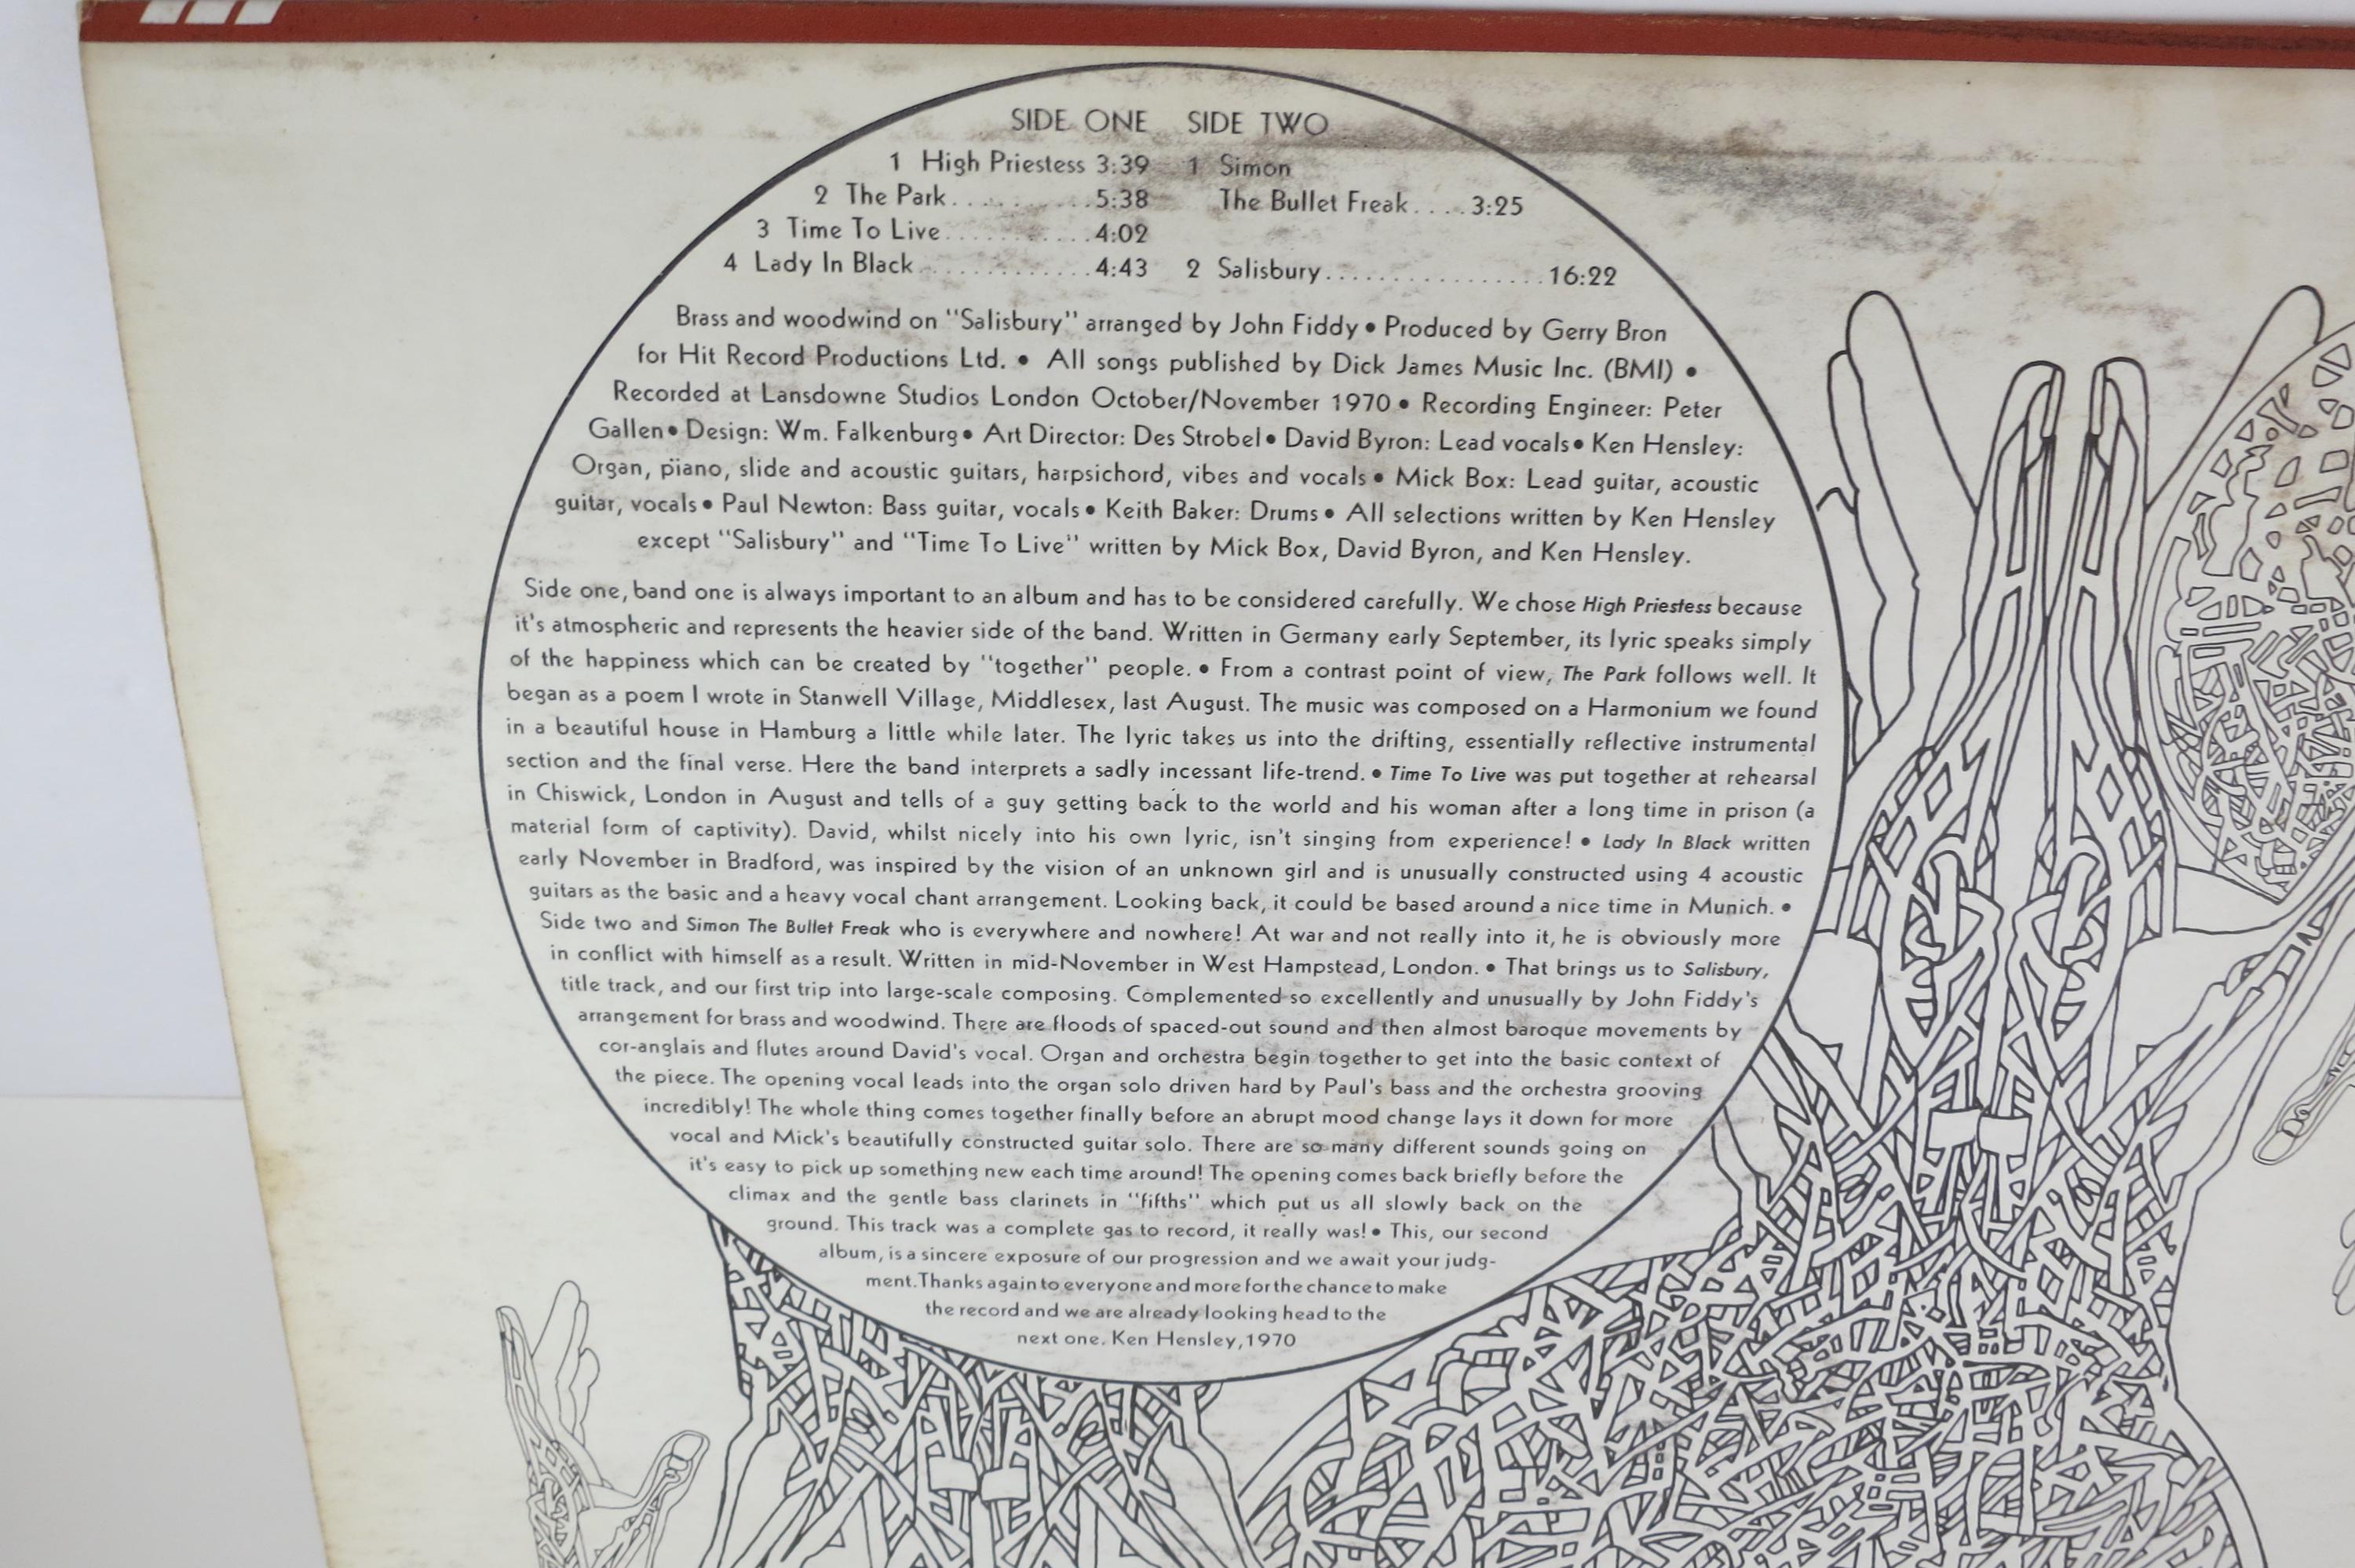 SIDE ONE SIDE TWO
1 High Priestess 3:39 1 Simon
2 The Park..........5:38 The Bullet Freak....3:25
3 Time To Live...........4:02
4 Lady In Black.............4:43 2 Salisbury.................16:22
Brass and woodwind on "Salisbury" arranged by John Fiddy • Produced by Gerry Bron
for Hit Record Productions Ltd. • All songs published by Dick James Music Inc. (BMI) •
Recorded at Lansdowne Studios London October/November 1970 • Recording Engineer: Peter
Gallen • Design: Wm. Falkenburg • Art Director: Des Strobel • David Byron: Lead vocals • Ken Hensley:
Organ, piano, slide and acoustic guitars, harpsichord, vibes and vocals • Mick Box: Lead guitar, acoustic
guitar, vocals • Paul Newton: Bass guitar, vocals • Keith Baker: Drums • All selections written by Ken Hensley
except "Salisbury" and "Time To Live" written by Mick Box, David Byron, and Ken Hensley.
Side one, band one is always important to an album and has to be considered carefully. We chose High Priestess because
it's atmospheric and represents the heavier side of the band. Written in Germany early September, its lyric speaks simply
of the happiness which can be created by "together" people. • From a contrast point of view, The Park follows well. It
began as a poem I wrote in Stanwell Village, Middlesex, last August. The music was composed on a Harmonium we found
in a beautiful house in Hamburg a little while later. The lyric takes us into the drifting, essentially reflective instrumental
section and the final verse. Here the band interprets a sadly incessant life-trend. • Time To Live was put together at rehearsal
in Chiswick, London in August and tells of a guy getting back to the world and his woman after a long time in prison (a
material form of captivity). David, whilst nicely into his own lyric, isn't singing from experience! • Lady In Black written
early November in Bradford, was inspired by the vision of an unknown girl and is unusually constructed using 4 acoustic
guitars as the basic and a heavy vocal chant arrangement. Looking back, it could be based around a nice time in Munich. •
Side two and Simon The Bullet Freak who is everywhere and nowhere! At war and not really into it, he is obviously more
in conflict with himself as a result. Written in mid-November in West Hampstead, London. • That brings us to Salisbury,
title track, and our first trip into large-scale composing. Complemented so excellently and unusually by John Fiddy's
arrangement for brass and woodwind. There are floods of spaced-out sound and then almost baroque movements by
cor-anglais and flutes around David's vocal. Organ and orchestra begin together to get into the basic context of
the piece. The opening vocal leads into the organ solo driven hard by Paul's bass and the orchestra grooving
incredibly! The whole thing comes together finally before an abrupt mood change lays it down for more
vocal and Mick's beautifully constructed guitar solo. There are so many different sounds going on
it's easy to pick up something new each time around! The opening comes back briefly before the
climax and the gentle bass clarinets in "fifths" which put us all slowly back on the
ground. This track was a complete gas to record, it really was! • This, our second
album, is a sincere exposure of our progression and we await your judg-
ment. Thanks again to everyone and more for the chance to make
the record and we are already looking head to the
next one. Ken Hensley, 1970